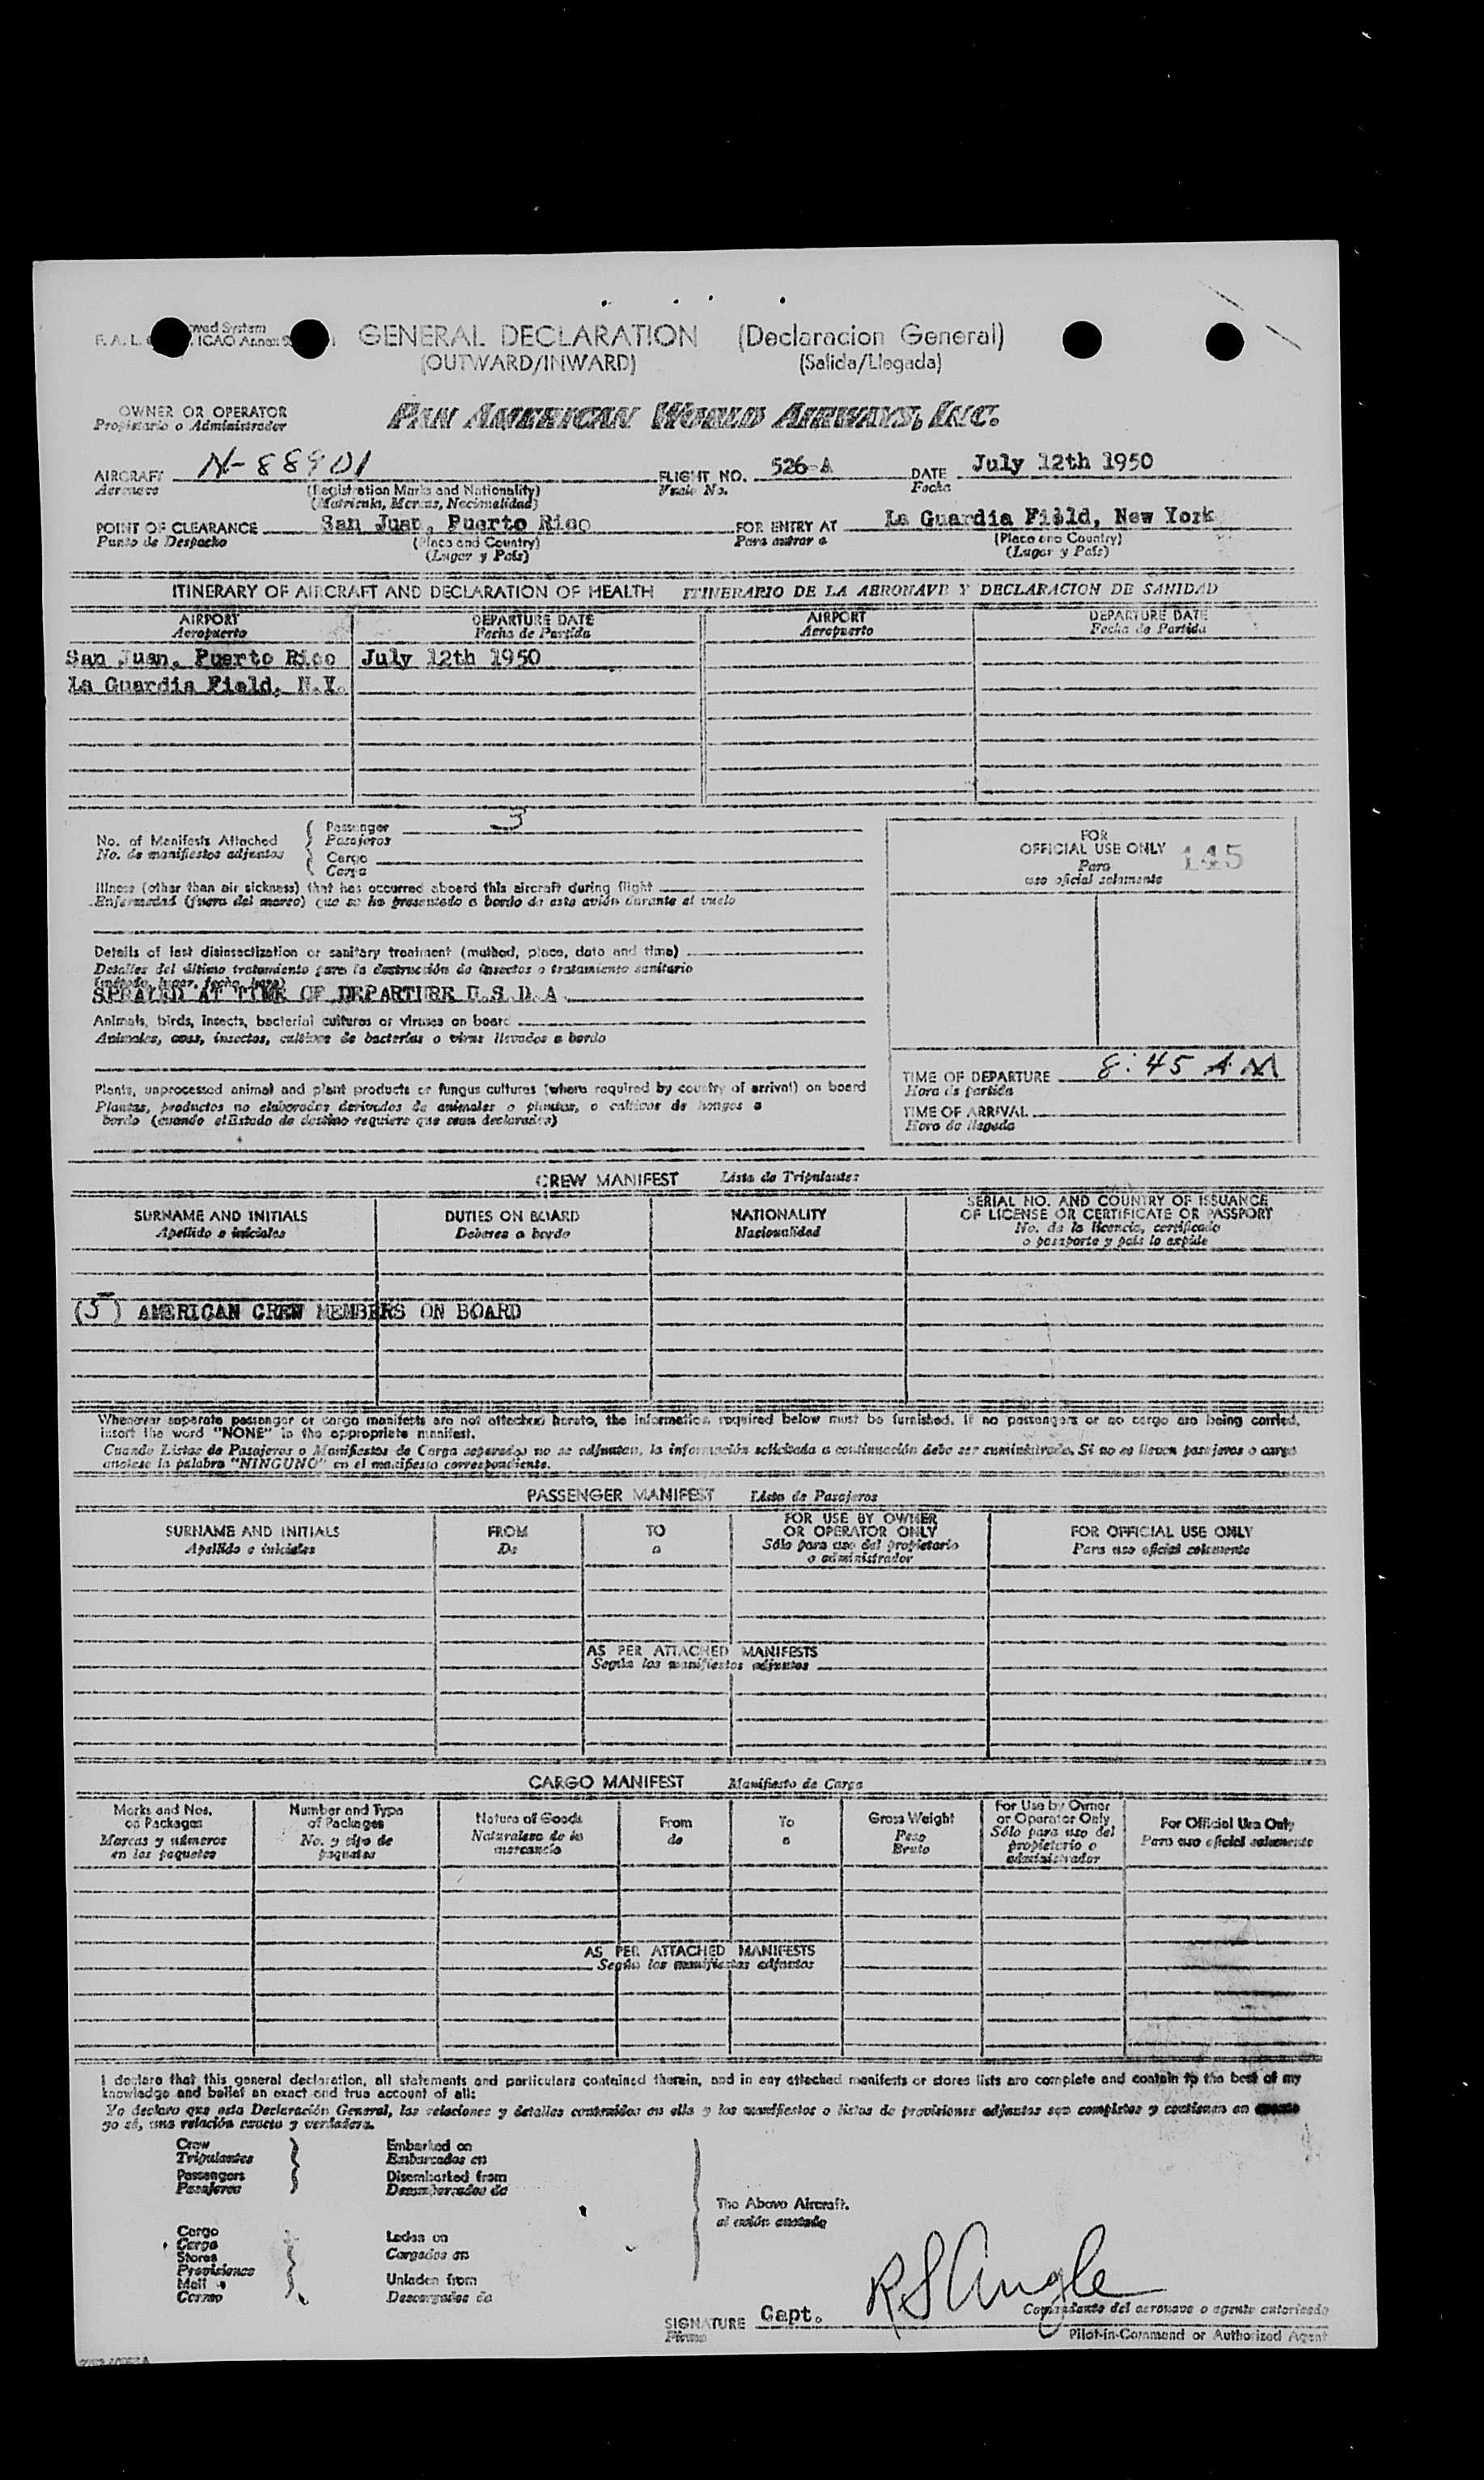 F. A. L. wed System
ICAO Annex 9
GENERAL DECLARATION (Declaracion General)
(OUTWARD/INWARD) (Salida/Llegada)
OWNER OR OPERATOR
Propietario o Administrador
PAN AMERICAN WORLD AIRWAYS, INC.
AIRCRAFT N-88901 FLIGHT NO. 526-A DATE July 12th 1950
Aeronave (Registration Marks and Nationality) Vuelo No. Fecha
(Matricula, Marcas, Nacionalidad)
POINT OF CLEARANCE San Juan, Puerto Rico FOR ENTRY AT La Guardia Field, New York
Punto de Despacho (Place and Country) Para entrar a (Place and Country)
(Lugar y País) (Lugar y País)
ITINERARY OF AIRCRAFT AND DECLARATION OF HEALTH ITINERARIO DE LA AERONAVE Y DECLARACION DE SANIDAD
AIRPORT DEPARTURE DATE AIRPORT DEPARTURE DATE
Aeropuerto Fecha de Partida Aeropuerto Fecha de Partida
San Juan, Puerto Rico July 12th 1950
La Guardia Field, N.Y.
No. of Manifests Attached
No. de manifiestos adjuntos
Passenger 3
Pasajeros
Cargo
Carga
FOR
OFFICIAL USE ONLY 145
Para
uso oficial solamente
Illness (other than air sickness) that has occurred aboard this aircraft during flight
Enfermedad (fuera del mareo) que se ha presentado a bordo de este avión durante el vuelo
Details of last disinsectization or sanitary treatment (method, place, date and time)
Detalles del último tratamiento para la destrucción de insectos o tratamiento sanitario
(método, lugar, fecha, hora)
SPRAYED AT TIME OF DEPARTURE U.S.D.A
Animals, birds, insects, bacterial cultures or viruses on board
Animales, aves, insectos, cultivos de bacterias o virus llevados a bordo
Plants, unprocessed animal and plant products or fungus cultures (where required by country of arrival) on board
Plantas, productos no elaborados derivados de animales o plantas, o cultivos de hongos a
bordo (cuando el Estado de destino requiere que sean declarados)
TIME OF DEPARTURE 8:45 AM
Hora de partida
TIME OF ARRIVAL
Hora de llegada
CREW MANIFEST Lista de Tripulantes
SURNAME AND INITIALS DUTIES ON BOARD NATIONALITY SERIAL NO. AND COUNTRY OF ISSUANCE
OF LICENSE OR CERTIFICATE OR PASSPORT
Apellido e iniciales Deberes a bordo Nacionalidad No. de la licencia, certificado
o pasaporte y país lo expide
(5) AMERICAN CREW MEMBERS ON BOARD
Whenever separate passenger or cargo manifests are not attached hereto, the information required below must be furnished. If no passengers or no cargo are being carried,
insert the word "NONE" in the appropriate manifest.
Cuando Listas de Pasajeros o Manifiestos de Carga separados no se adjuntan, la información solicitada a continuación debe ser suministrada. Si no se llevan pasajeros o carga
anótese la palabra "NINGUNO" en el manifiesto correspondiente.
PASSENGER MANIFEST Lista de Pasajeros
SURNAME AND INITIALS FROM TO FOR USE BY OWNER
OR OPERATOR ONLY FOR OFFICIAL USE ONLY
Apellido e iniciales De a Sólo para uso del propietario
o administrador Para uso oficial solamente
AS PER ATTACHED MANIFESTS
Según los manifiestos adjuntos
CARGO MANIFEST Manifiesto de Carga
Marks and Nos.
on Packages
Marcas y números
en los paquetes
Number and Type
of Packages
No. y tipo de
paquetes
Nature of Goods
Naturaleza de la
mercancía
From
de
To
a
Gross Weight
Peso
Bruto
For Use by Owner
or Operator Only
Sólo para uso del
propietario o
administrador
For Official Use Only
Para uso oficial solamente
AS PER ATTACHED MANIFESTS
Según los manifiestos adjuntos
I declare that this general declaration, all statements and particulars contained therein, and in any attached manifests or stores lists are complete and contain to the best of my
knowledge and belief an exact and true account of all:
Yo declaro que esta Declaración General, las relaciones y detalles contenidos en ella y los manifiestos o listas de provisiones adjuntas son completos y contienen en cuanto
yo sé, una relación exacta y verdadera.
Crew
Tripulantes
Passengers
Pasajeros
Embarked on
Embarcados en
Disembarked from
Desembarcados de
The Above Aircraft.
al avión anotado
Cargo
Carga
Stores
Provisiones
Mail
Correo
Laden on
Cargados en
Unladen from
Descargados de
SIGNATURE Capt. R S Angle
Firma
Comandante del aeronave o agente autorizado
Pilot-in-Command or Authorized Agent